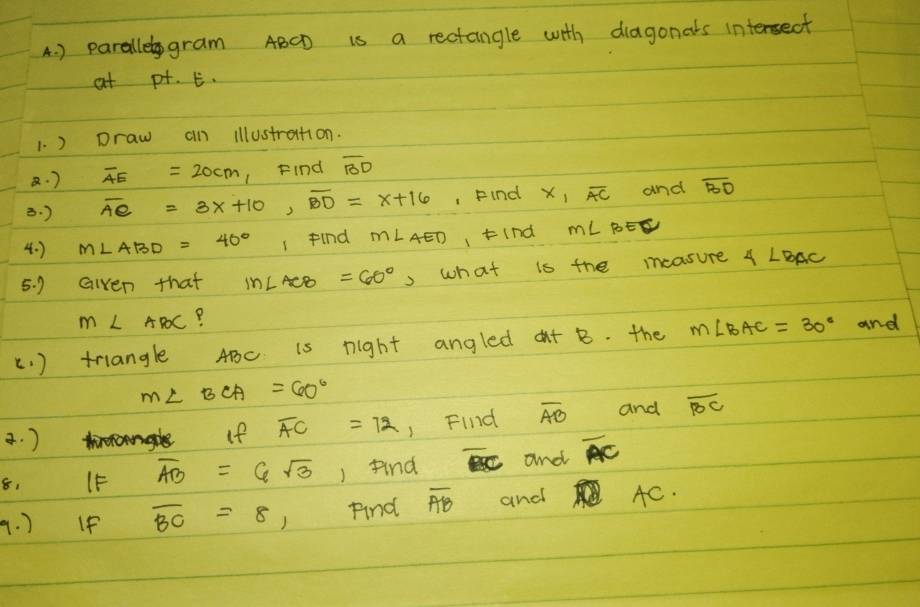 A.) Parallelogram ABCD is a rectangle with diagonals intersect
at pt. E.
1.) Draw an illustration.
2.) AE = 20cm, Find BD
3.) AC = 3x+10, BD = x+16, Find x, AC and BD
4.) m∠ABD = 40°, Find m∠AED, Find m∠BEC
5.) Given that m∠ACB = 60°, what is the measure of ∠BAC
m∠ ABC?
triangle ABC is right angled at B. the m∠BAC = 30° and
m∠ BCA = 60°
7.) If AC = 12, Find AB and BC
8. IF AB = 6√3, Find BC and AC
9.) IF BC = 8, Find AB and AC.